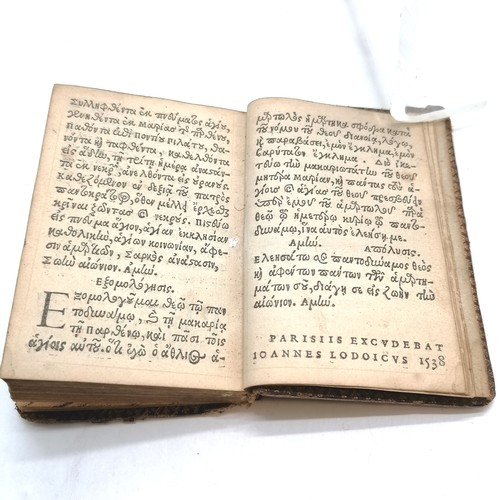 Συλληφθέντα ἐκ πνεύματος ἁγίου,
γεννηθέντα ἐκ Μαρίας τῆς παρθένου,
παθόντα ἐπὶ ποντίου Πιλάτου, θα-
νόντα καὶ ταφθέντα, κατελθόντα
εἰς ᾅδου, τῇ τρίτῃ ἡμέρᾳ ἀναστάν-
τα ἐκ νεκρῶν, ἀνελθόντα εἰς οὐρανούς.
καθεζόμενον ἐν δεξιᾷ τοῦ πατρὸς
παντοκράτορος, ὅθεν μέλλει ἔρχεσθαι
κρῖναι ζῶντας καὶ νεκρούς. Πιστεύω
εἰς πνεῦμα ἅγιον, ἁγίαν ἐκκλησίαν
καθολικὴν, ἁγίων κοινωνίαν, ἄφε-
σιν ἁμαρτιῶν, Σαρκὸς ἀνάστασιν,
Ζωὴν αἰώνιον. Ἀμήν.
Εξομολόγησις.
Εξομολογοῦμαι θεῷ τῷ παν
τοδυνάμῳ, καὶ τῇ μακαρίᾳ
τῇ Παρθένῳ, καὶ πᾶσι τοῖς
ἁγίοις αὐτοῦ. ὅτι ἐγὼ ὁ ἄθλιος ἁ-
μαρτωλὸς ἡμάρτηκα σφόδρα κατὰ
τὸν νόμον τοῦ θεοῦ διανοίᾳ, λόγῳ,
καὶ παραβάσει, ἐμὸν ἔγκλημα, ἐμὸν
βαρύτατον ἔγκλημα. Διὸ ἱκε-
τεύω τὴν μακαριωτάτην τοῦ θεοῦ
μητέρα Μαρίαν, καὶ πάντας τοὺς ἁ-
γίους καὶ ἁγίας τοῦ θεοῦ
ὑπὲρ ἐμοῦ τοῦ ἁμαρτωλοῦ παρὰ
θεῷ τῷ ἡμετέρῳ κυρίῳ τῷ παντο-
δυνάμῳ, ἵνα αὐτὸς ἐλεήσῃ με.
Ἀμήν. Ἀπόλυσις.
Ελεησάτω ὁ παντοδύναμος θεὸς
καὶ ἀφεὶς πάντων τῶν ἁμαρτη-
μάτων σου, διάγῃ σε εἰς ζωὴν τὴν
αἰώνιον. Ἀμήν.
PARISIIS EXCVDEBAT
IOANNES LODOICVS 1538